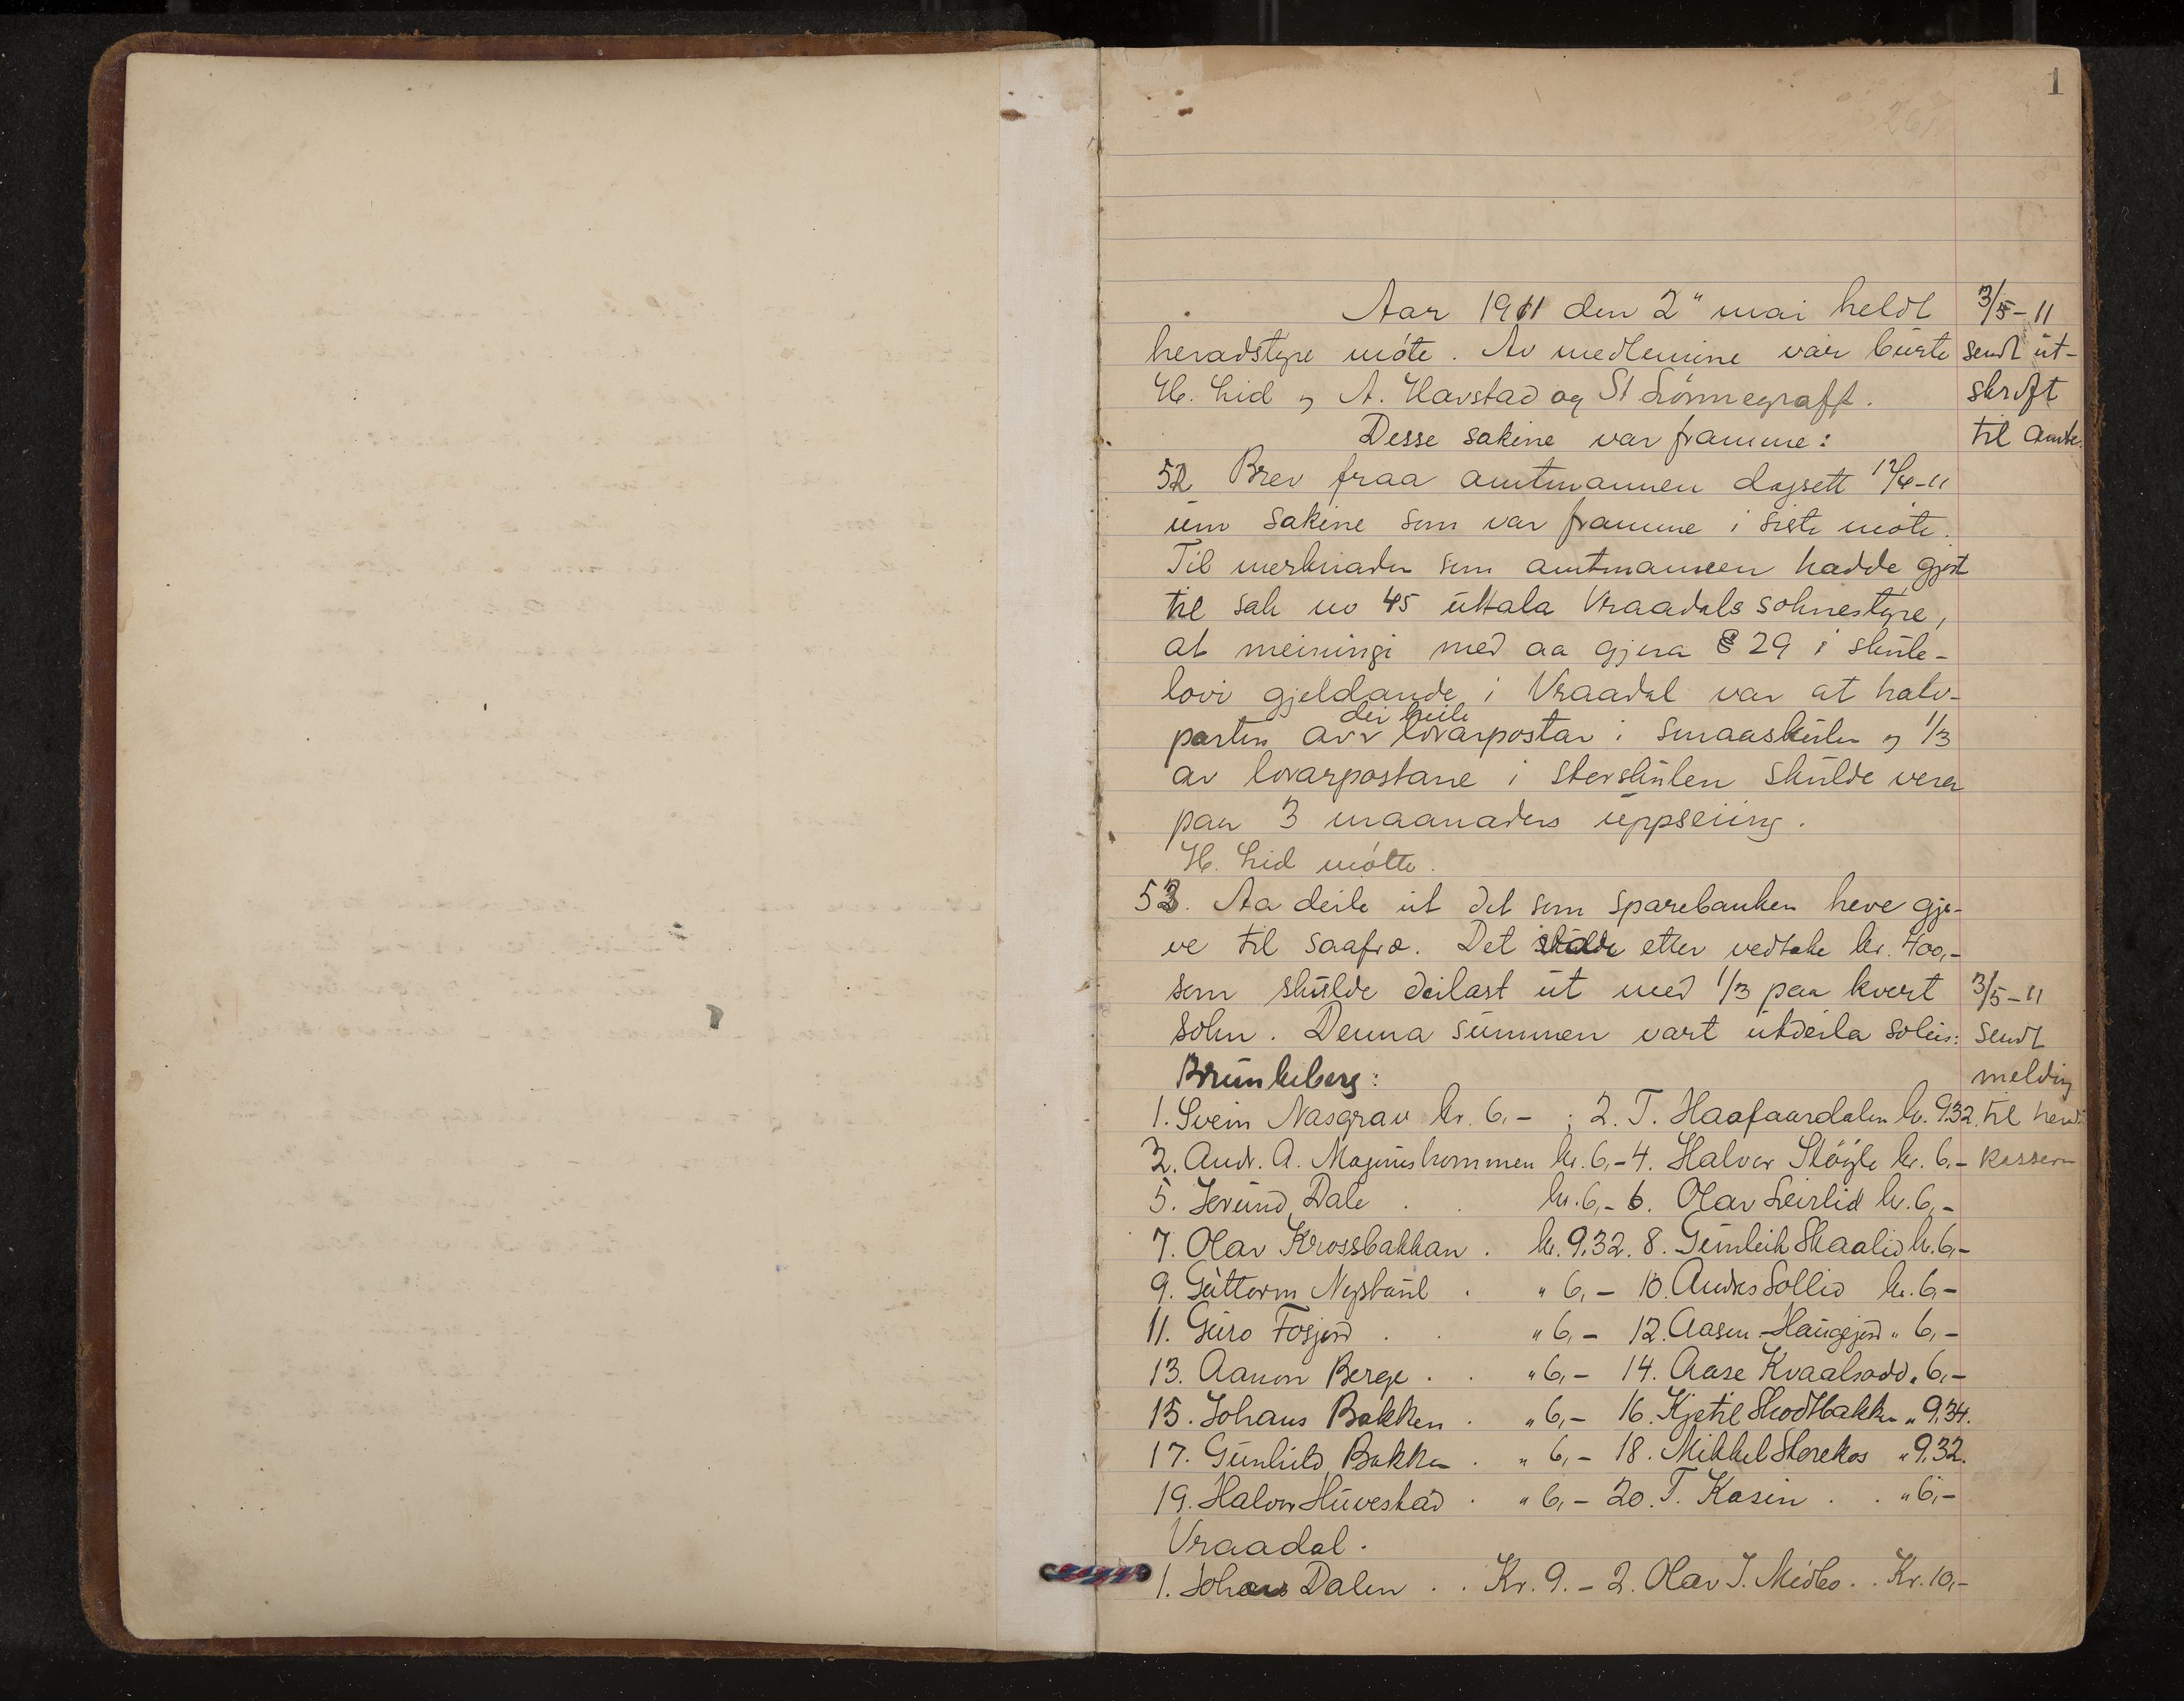 1
Aar 1911 den 2" mai heldt
heradstyre móte. Av medlemine var burte
H. Lid og A. Havstad og St Lónnegraff.
Desse sakine var framme:
3/5-11
sendt ut-
skrift
til amtet.
52 Brev fraa amtmannen dagsett 12/4-11
um sakine som var framme i siste móte.
Til merknader som amtmannen hadde gjort
til sak no 45 uttala Vraadals soknestyre,
at meiningi med aa gjera § 29 i skule-
lovi gjeldande i Vraadal var at halv-
dei heile
parten av lærarpostar i smaaskulen og 1/3
av lærarpostane i storskulen skulde vera
paa 3 maanaders uppseiing.
H. Lid mótte.
53. Aa deile ut det som sparebanken heve gje-
ve til saafræ. Det etter vedtake kr. 400,-
som skulde deilast ut med 1/3 paa kvert
sokn. Denna summen vart utdeila soleis:
3/5-11
sendt
melding
til herads
kassern
Brunkeberg:
1. Svein Nasgrav kr. 6,- ; 2. T. Haafaardalen kr. 9.32.
3. Andr. A. Magnushommen kr. 6,- 4. Halvor Stóyle kr. 6,-
5. Jorund Dale . . kr. 6,- 6. Olav Leirlid kr. 6,-
7. Olav Krossbakkan . kr. 9.32. 8. Gunleik Skaalid kr. 6,-
9. Guttorm Nystaul . " 6,- 10. Andres Sollid kr. 6,-
11. Guro Fosjord . . " 6,- 12. Aasen-Haugejord " 6,-
13. Aanon Berge . . " 6,- 14. Aase Kvaalsodd " 6,-
15. Johans Bakken . " 6,- 16. Kjetil Skodtbakken " 9.34.
17. Gunhild Bakken . " 6,- 18. Mikkel Storekos " 9.32.
19. Halvor Huvestad . " 6,- 20. T. Kasin . . " 6,-
Vraadal.
1. Johans Dalen . . Kr. 9.- 2. Olav J. Midbo . . Kr. 10,-